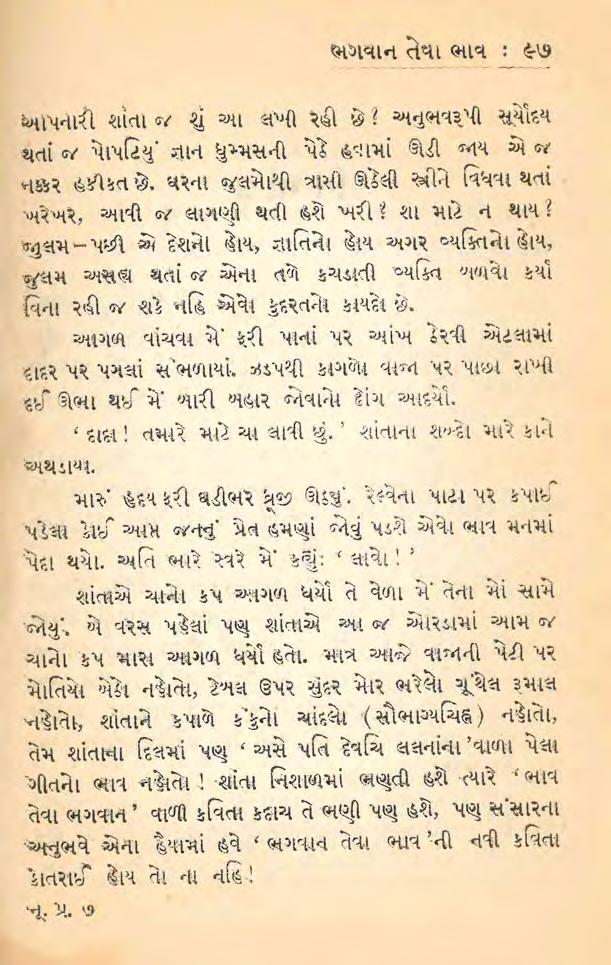 ભગવાન તેવા ભાવ : ૯૭
આપનારી શાંતા જ શું આ લખી રહી છે? અનુભવરૂપી સૂર્યોદય
થતાં જ પોપટિયું જ્ઞાન ધુમ્મસની પેઠે હવામાં ઊડી જાય એ જ
નક્કર હકીકત છે. ઘરના જુલમોથી ત્રાસી ઊઠેલી સ્ત્રીને વિધવા થતાં
ખરેખર, આવી જ લાગણી થતી હશે ખરી? શા માટે ન થાય?
જુલમ – પછી એ દેશનો હોય, જ્ઞાતિનો હોય અગર વ્યક્તિનો હોય,
જુલમ અસહ્ય થતાં જ એના તળે કચડાતી વ્યક્તિ બળવો કર્યા
વિના રહી જ શકે નહિ એવો કુદરતનો કાયદો છે.
આગળ વાંચવા મેં ફરી પાનાં પર આંખ ફેરવી એટલામાં
દાદર પર પગલાં સંભળાયાં. ઝડપથી કાગળો વાજા પર પાછા રાખી
દઈ ઊભા થઈ મેં બારી બહાર જોવાનો ઢોંગ આદર્યો.
‘ દાદા ! તમારે માટે ચા લાવી છું. ’ શાંતાના શબ્દો મારે કાને
અથડાયા.
મારું હૃદય ફરી ઘડીભર ધ્રૂજી ઊઠ્યું. રેલ્વેના પાટા પર કપાઈ
પડેલા કોઈ આપ્ત જનનું પ્રેત હમણાં જોવું પડશે એવો ભાવ મનમાં
પેદા થયો. અતિ ભારે સ્વરે મેં કહ્યું: ‘ લાવો ! ’
શાંતાએ ચાનો કપ આગળ ધર્યો તે વેળા મેં તેના મોં સામે
જોયું. બે વરસ પહેલાં પણ શાંતાએ આ જ ઓરડામાં આમ જ
ચાનો કપ મારા આગળ ધર્યો હતો. માત્ર આજે વાજાની પેટી પર
મોતિયો બેઠો નહોતો, ટેબલ ઉપર સુંદર મોર ભરેલો ગૂંથેલ રૂમાલ
નહોતો, શાંતાને કપાળે કંકુનો ચાંદલો (સૌભાગ્યચિહ્ન) નહોતો,
તેમ શાંતાના દિલમાં પણ ‘ અસે પતિ દેવચિ લલનાંના ’વાળા પેલા
ગીતનો ભાવ નહોતો ! શાંતા નિશાળમાં ભણતી હશે ત્યારે ‘ ભાવ
તેવા ભગવાન ’ વાળી કવિતા કદાચ તે ભણી પણ હશે, પણ સંસારના
અનુભવે એના હૈયામાં હવે ‘ ભગવાન તેવા ભાવ ’ની નવી કવિતા
કોતરાઈ હોય તો ના નહિ !
નૂ. પ્ર. ૭